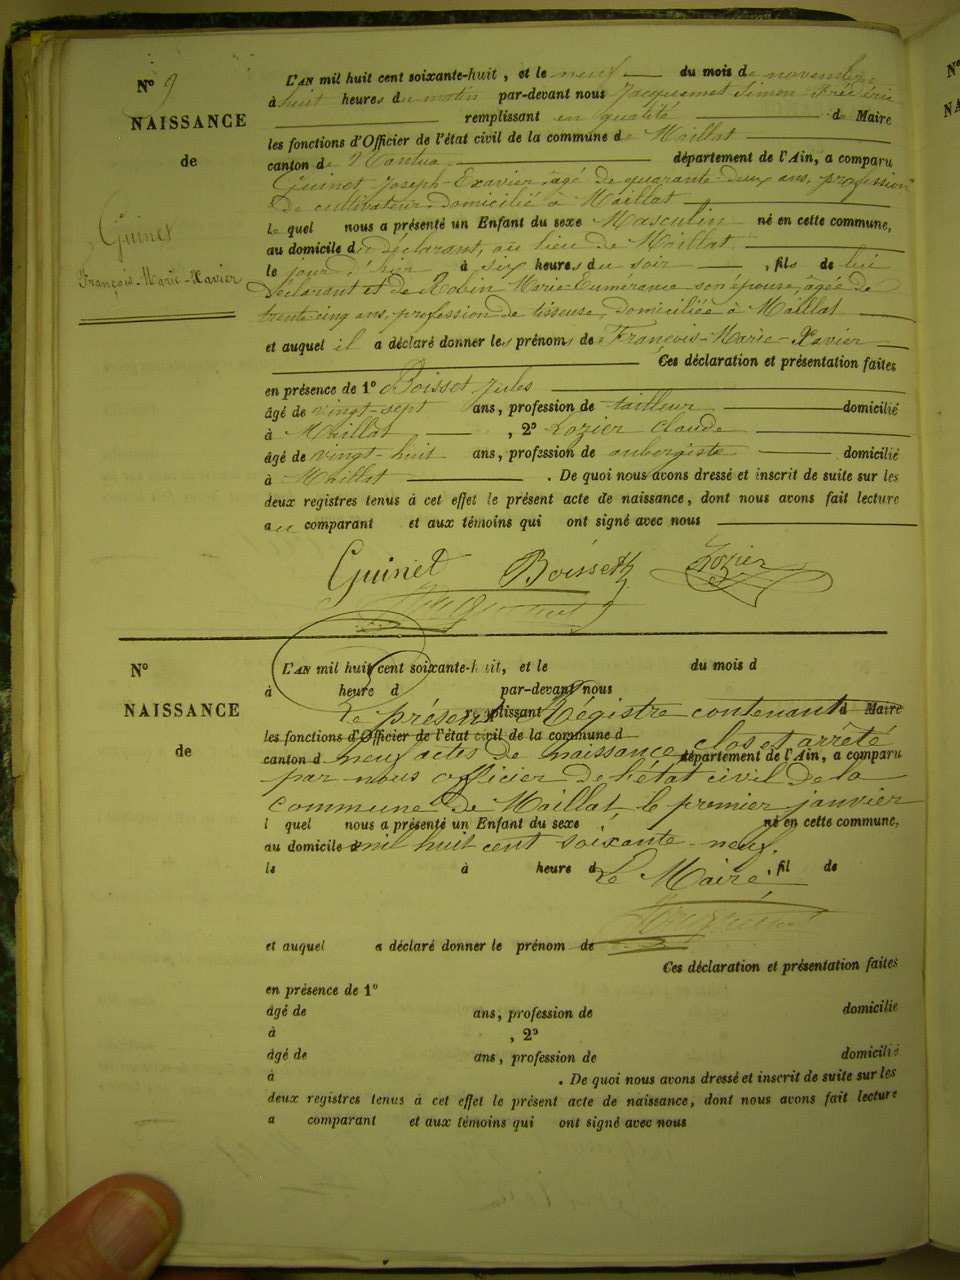 N° 9
NAISSANCE
de
Guinet
François-Marie-Xavier
L'AN mil huit cent soixante-huit, et le neuf du mois de novembre
à huit heures du matin par-devant nous Jacquemet Simon Frédéric
remplissant en qualité de Maire
les fonctions d'Officier de l'état civil de la commune de Maillat
canton de Nantua département de l'Ain, a comparu
Guinet Joseph-Exavier, âgé de quarante-deux ans, profession
de cultivateur domicilié à Maillat
le quel nous a présenté un Enfant du sexe Masculin né en cette commune,
au domicile du déclarant, au lieu de Maillat
le jour d'hier à six heures du soir, fils de lui
déclarant et de Robin Marie-Eumerance son épouse, âgée de
trente-cinq ans, profession de tisseuse, domiciliée à Maillat
et auquel il a déclaré donner les prénoms de François-Marie-Xavier
Ces déclaration et présentation faites
en présence de 1° Boisset Jules
âgé de vingt-sept ans, profession de tailleur domicilié
à Maillat, 2° Lozier Claude
âgé de vingt-huit ans, profession de aubergiste domicilié
à Maillat. De quoi nous avons dressé et inscrit de suite sur les
deux registres tenus à cet effet le présent acte de naissance, dont nous avons fait lecture
au comparant et aux témoins qui ont signé avec nous
Guinet Boisset Lozier
N°
NAISSANCE
de
L'AN mil huit cent soixante-huit, et le du mois d
à heure d par-devant nous
remplissant d Maire
Le présent Régistre contenant
les fonctions d'Officier de l'état civil de la commune d
neuf actes de naissance clos et arrêté
canton d département de l'Ain, a comparu
par nous officier de l'état civil de la
commune de Maillat le premier janvier
l quel nous a présenté un Enfant du sexe né en cette commune,
au domicile d
mil huit cent soixante-neuf.
le à heure d , fil de
Le Maire
et auquel a déclaré donner le prénom de
Ces déclaration et présentation faites
en présence de 1°
âgé de ans, profession de domicilié
à , 2°
âgé de ans, profession de domicilié
à . De quoi nous avons dressé et inscrit de suite sur les
deux registres tenus à cet effet le présent acte de naissance, dont nous avons fait lecture
a comparant et aux témoins qui ont signé avec nous
N°